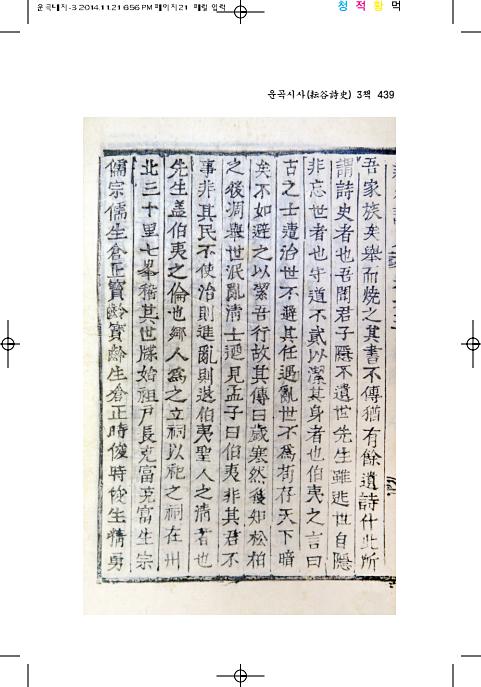 운곡시사-3 2014.11.21 6:56 PM 페이지21 매킬 입력
청 적 황 먹
운곡시사(耘谷詩史) 3책 439
吾家族矣擧而燒之其書不傳猶有餘遺詩什此所
謂詩史者也吾聞君子隱不遺世先生雖逃世自隱
非忘世者也守道不貳以潔其身者也伯夷之言曰
古之士遭治世不避其任遇亂世不爲苟存天下暗
矣不如避之以潔吾行故其傳曰歲寒然後知松柏
之後凋擧世泯亂淸士迺見孟子曰伯夷非其君不
事非其民不使治則進亂則退伯夷聖人之淸者也
先生盖伯夷之倫也鄕人爲之立祠以祀之祠在州
北三十里七峯稽其世牒始祖戶長克富克富生宗
儒宗儒生倉正寶齡寶齡生倉正時俊時俊生精勇